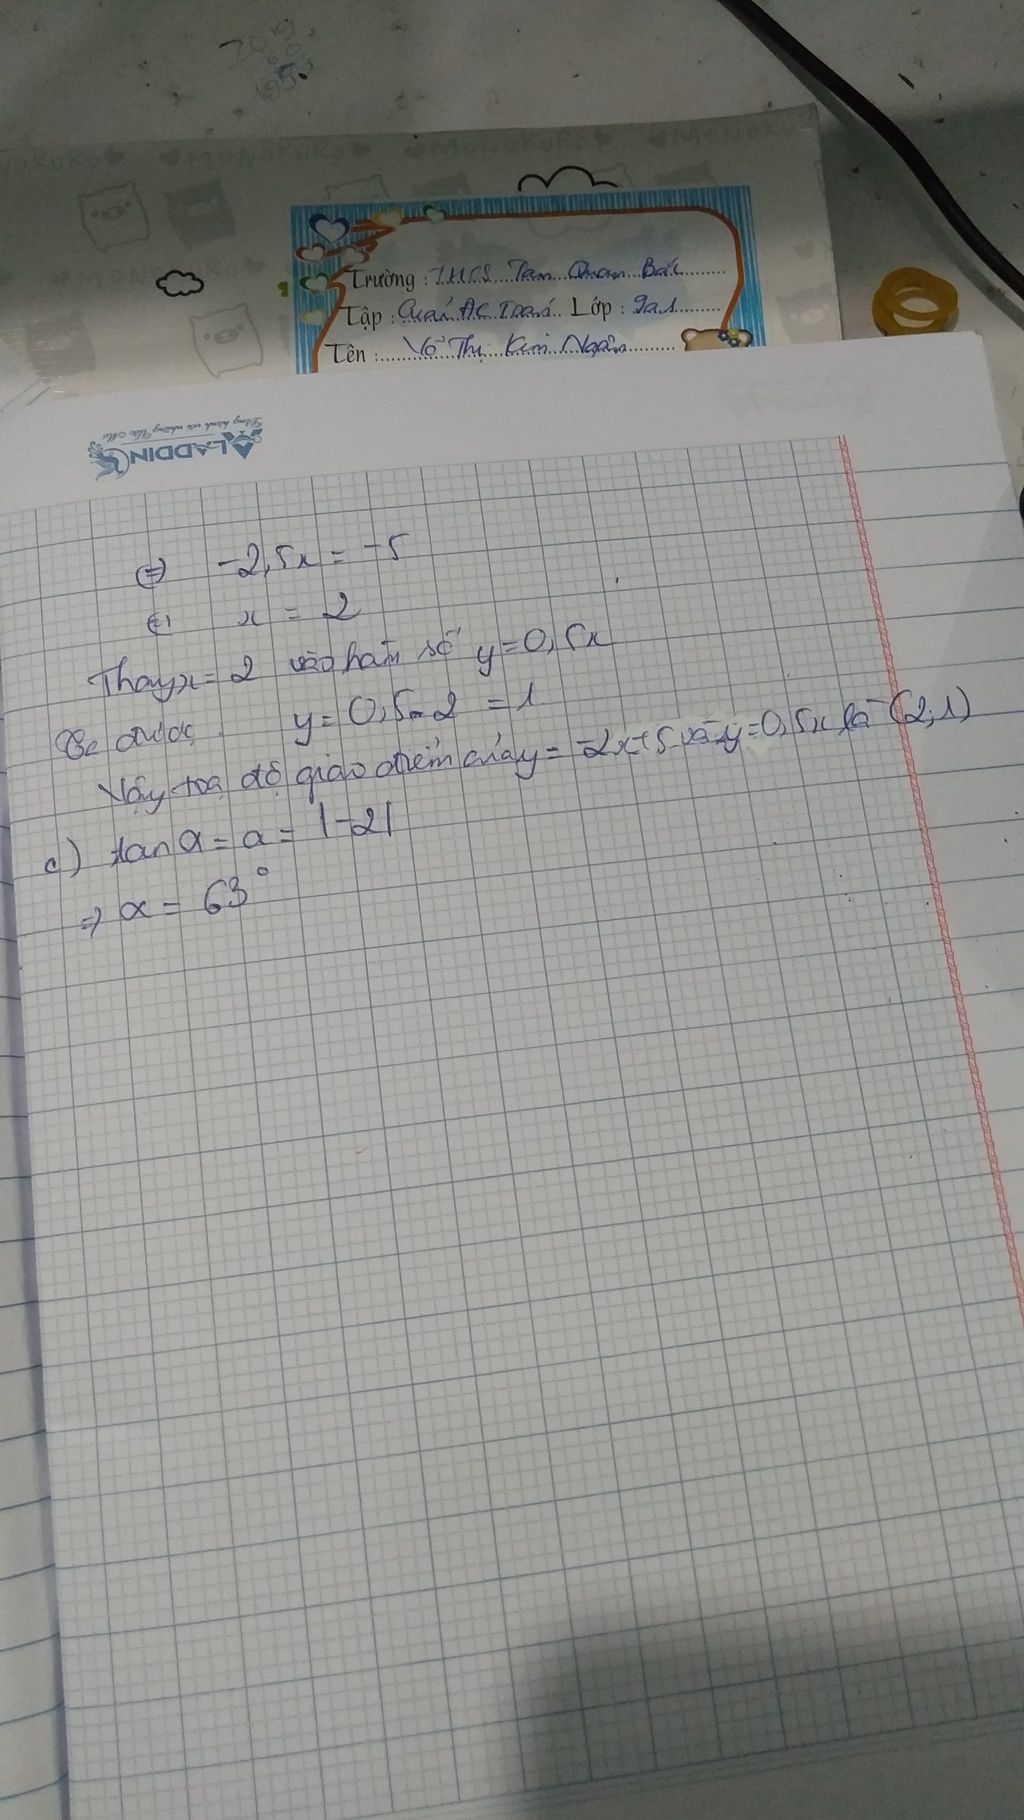 MONOKURO MONOKURO MONOKURO
Trường : THCS Tam Quan Bắc
Tập : Toán Lớp : 9a1
Tên : Võ Thị Kim Ngân
ALADDIN
Đồng hành với những
(=) -2,5x = -5
(=) x = 2
Thay x = 2 vào hàm số y = 0,5x
được y = 0,5.2 = 1
Vậy toạ độ giao điểm của y = -2x+5 và y = 0,5x là (2;1)
c) tan α = a = |-2|
=> α = 63°